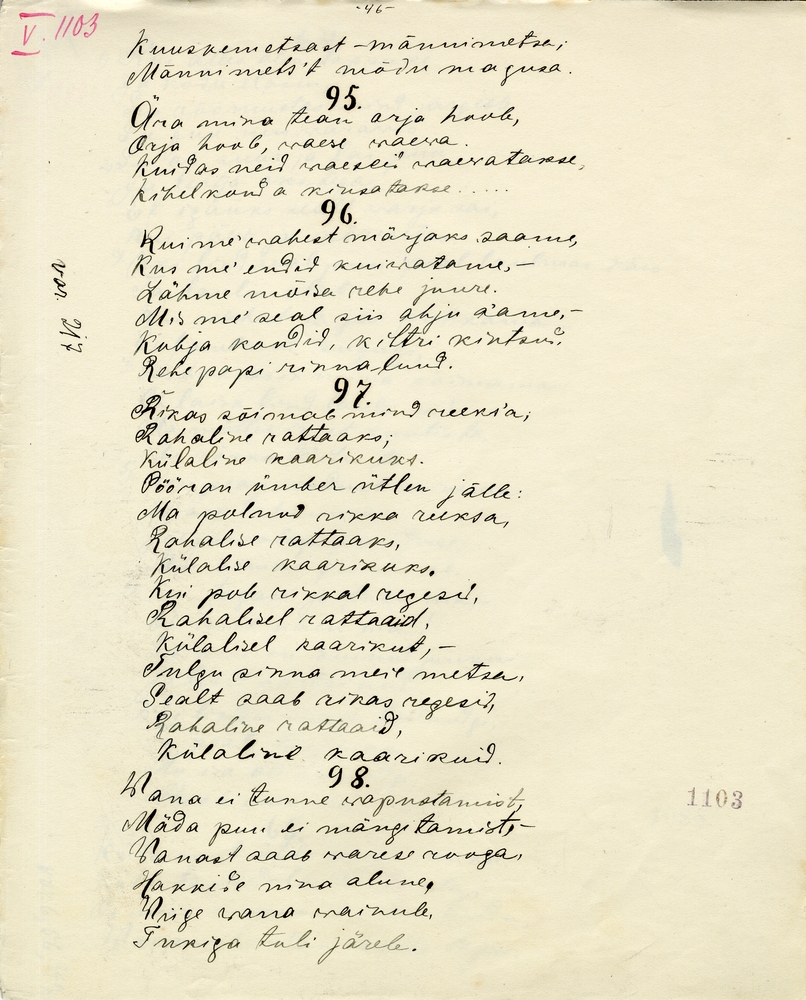 -46-
V. 1103
Kuuskemetsast - männimetsa;
Männimets't mõdu magusa.
95.
Ära mina tean orja hoole,
Orja hoole, waese waewa.
Kuidas neid waeseid waewatakse,
Kihelkonda kiusatakse.....
96.
Kui me' wahest märjaks saame,
Kus me' endid kuiwatame, -
Lähme mõisa rehe juure.
Mis me' seal siis ahju a'ame, -
Kubja kondid, kiltri kintsud.
Rehepapi rinnaluud.
97.
Rikas sõimab mind reeks'a;
Rahaline rattaaks;
Külaline kaarikuks.
Pööran ümber ütlen jälle:
Ma polnud rikka reeksa,
Rahalise rattaaks,
Külalise kaarikuks.
Kui pole rikkal regesid,
Rahalisel rattaaid,
Külalisel kaarikut, -
Tulgu sinna meie metsa,
Sealt saab rikas regesid,
Rahaline rattaaid,
Külaline kaarikuid.
98.
Wana ei tunne wapustamist,
Mäda puu ei mängitamist, -
Wanast saab warese rooga,
Hakkide nina alune,
Wiige wana wainule,
Tukiga tuli järele.
1103